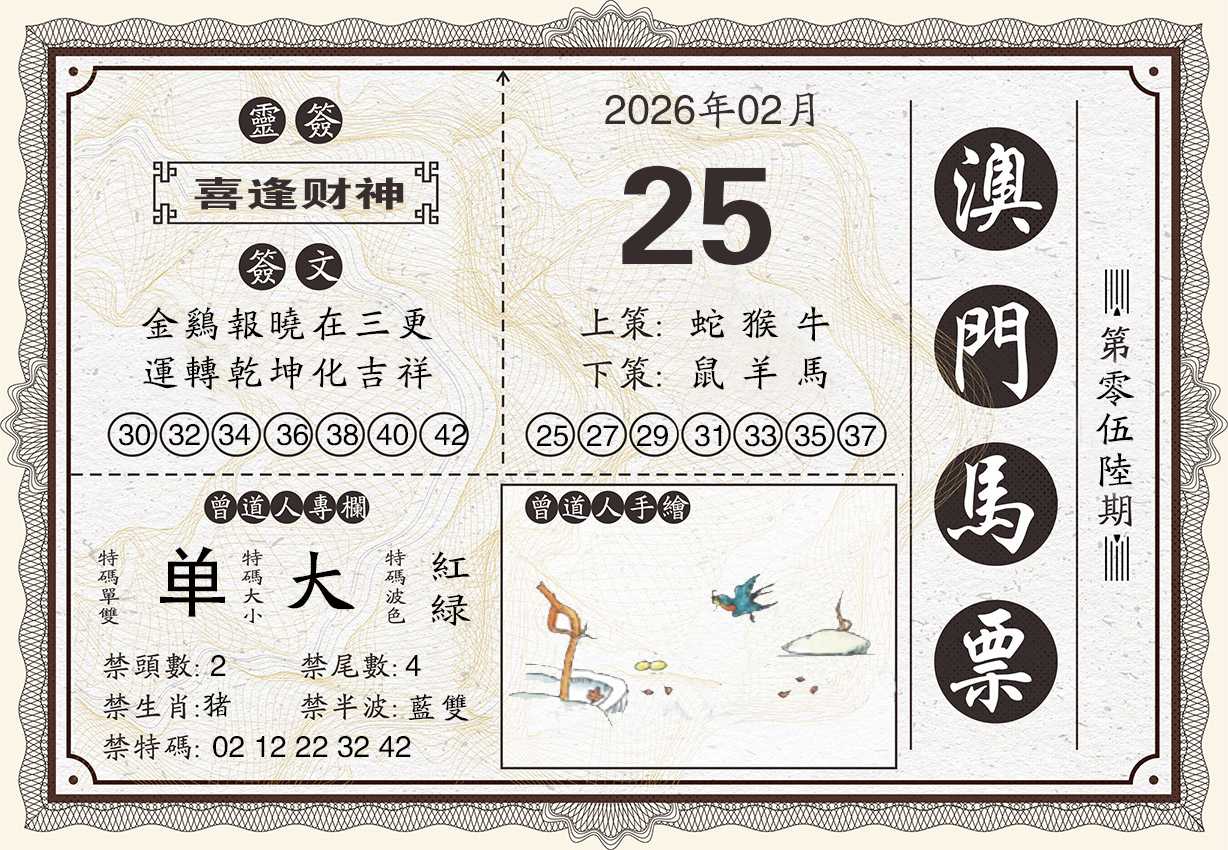 靈簽
喜逢财神
簽文
金鷄報曉在三更
運轉乾坤化吉祥
30 32 34 36 38 40 42
2026年02月
25
上策: 蛇 猴 牛
下策: 鼠 羊 馬
25 27 29 31 33 35 37
曾道人專欄
特碼單雙 单
特碼大小 大
特碼波色 紅緑
禁頭數: 2 禁尾數: 4
禁生肖:猪 禁半波: 藍雙
禁特碼: 02 12 22 32 42
曾道人手繪
澳門馬票
第零伍陸期